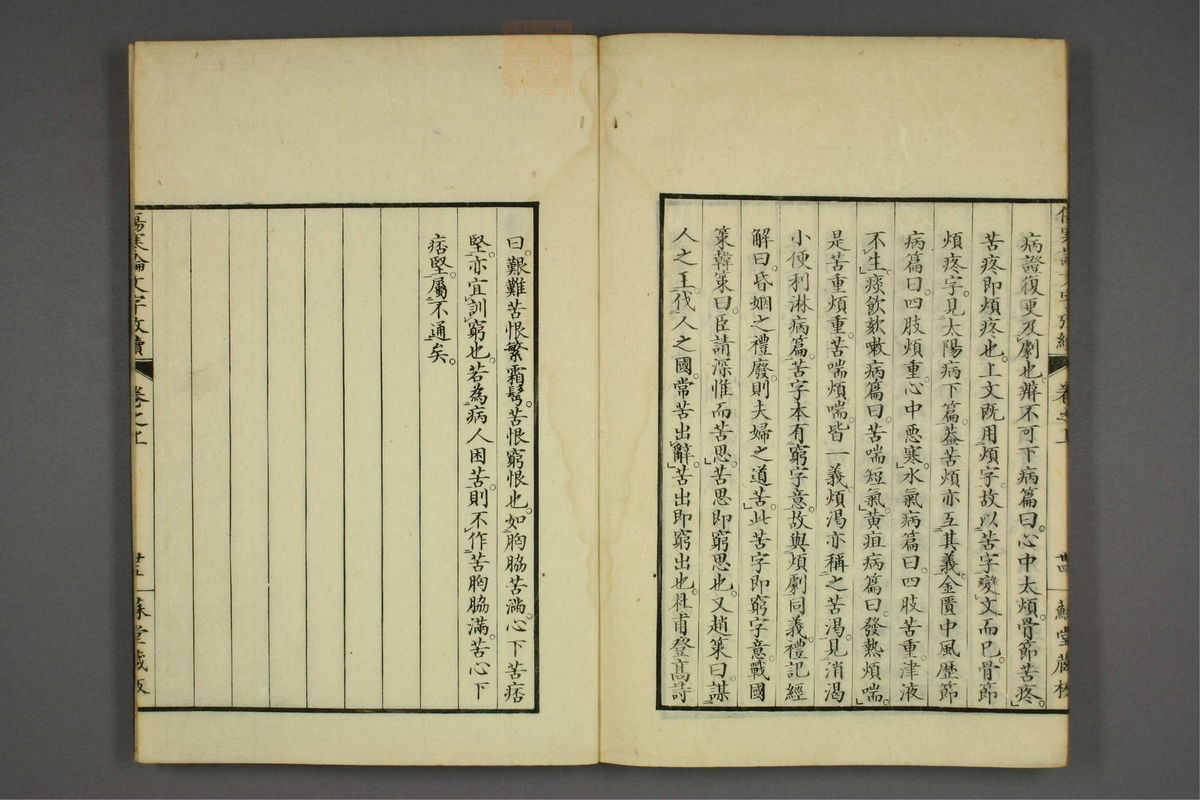 病證復更及劇也辨不可下病篇曰心中太煩骨節苦疼
苦疼即煩疼也上文既用煩字故以苦字變文而已骨節
煩疼字見太陽病下篇葢苦煩亦互其義金匱中風歴節
病篇曰四肢煩重心中惡寒水氣病篇曰四肢苦重津液
不生痰飲欬嗽病篇曰苦喘短氣黄疸病篇曰發熱煩喘
是苦重煩重苦喘煩喘皆一義煩渴亦稱之苦渴見消渴
小便利淋病篇苦字本有窮字意故與煩劇同義禮記經
解曰昏姻之禮廢則夫婦之道苦此苦字即窮字意戰國
策韓策曰臣請深惟而苦思苦思即窮思也又趙策曰謀
人之主伐人之國常苦出辭苦出即窮出也杜甫登高詩
卷之上
廿四
曰艱難苦恨繁霜鬂苦恨窮恨也如胸脇苦滿心下苦痞
堅亦宜訓窮也若為病人困苦則不作苦胸脇滿苦心下
痞堅屬不通矣
傷寒論文字攷續
卷之上
廿五
穌堂藏板